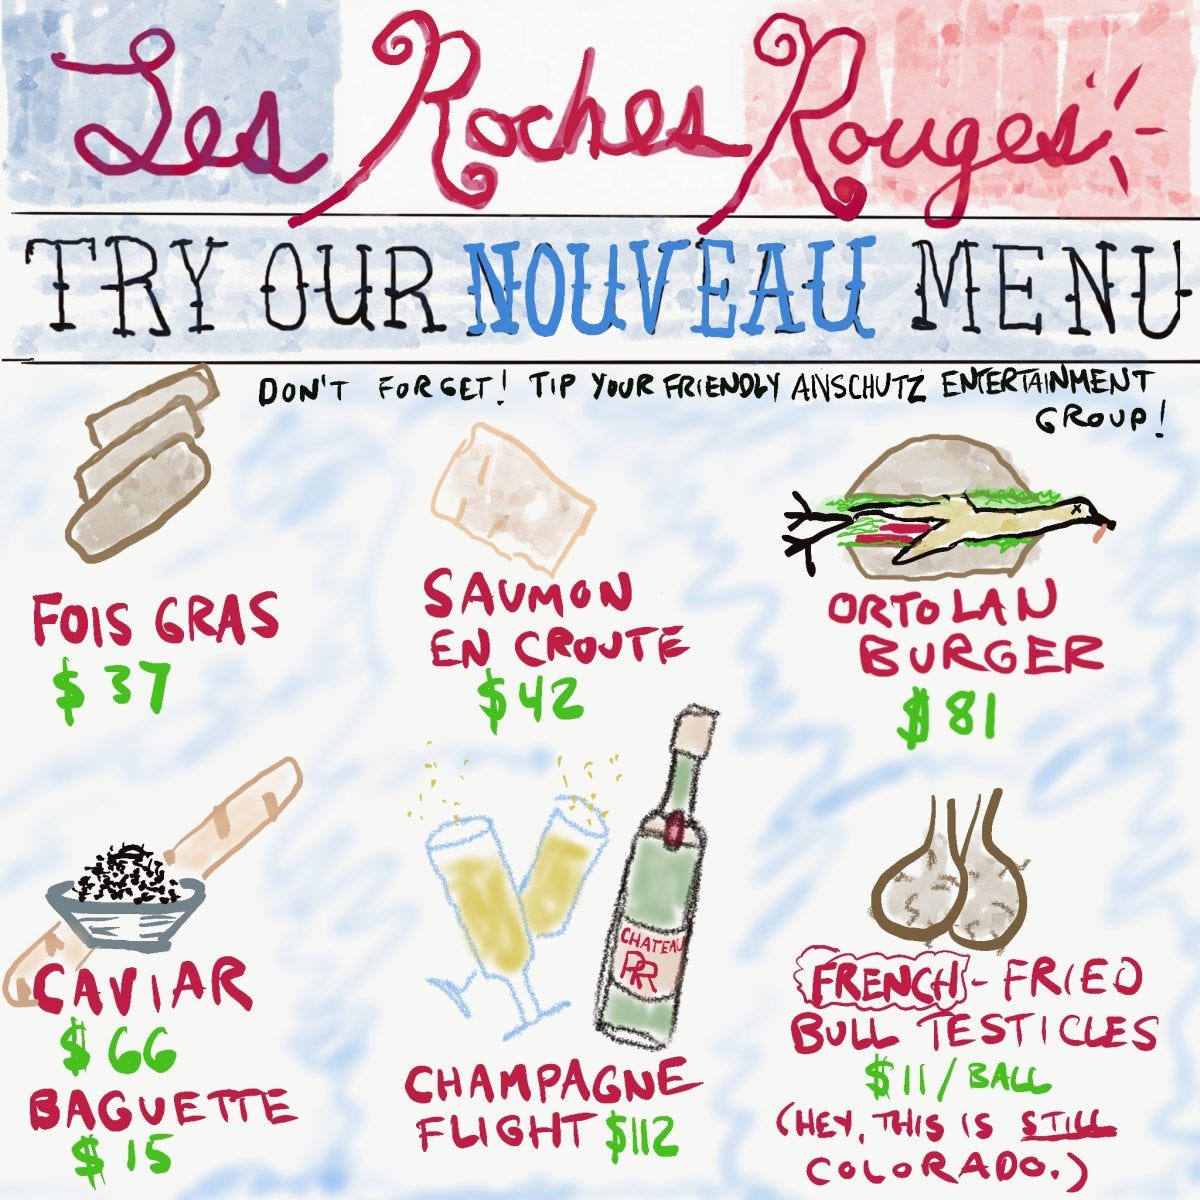 Les Roches Rouges
TRY OUR NOUVEAU MENU
DON'T FORGET! TIP YOUR FRIENDLY ANSCHUTZ ENTERTAINMENT
GROUP!
FOIS GRAS
$37
SAUMON
EN CROUTE
$42
ORTOLAN
BURGER
$81
CAVIAR
$66
BAGUETTE
$15
CHATEAU
RR
CHAMPAGNE
FLIGHT $112
FRENCH-FRIED
BULL TESTICLES
$11/BALL
(HEY, THIS IS STILL
COLORADO.)